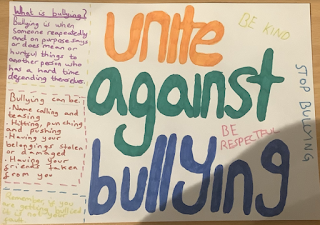 What is bullying?
Bullying is when
someone repeatedly
and on purpose says
or does mean or
hurtful things to
another person who
has a hard time
defending themselves.
Bullying can be:
- Name calling and
teasing
- Hitting, punching
and pushing
- Having your
belongings stolen
or damaged
- Having your
friends taken
from you
Remember, if you
are
it is not your
fault
unite
against
bullying
BE KIND
STOP BULLYING
BE
RESPECTFUL